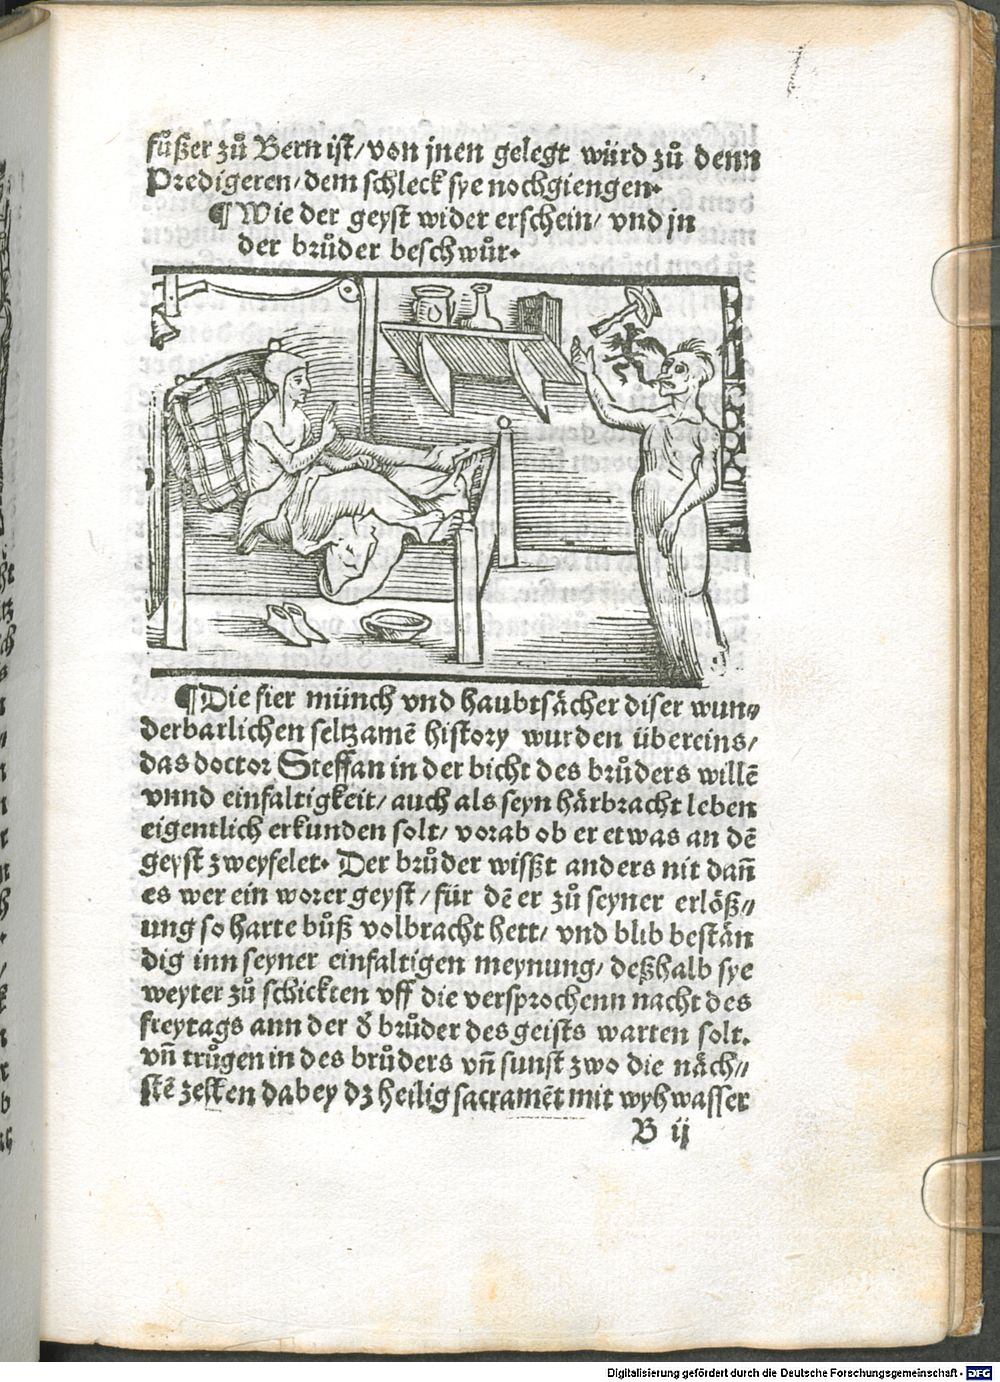 fůßer zů Bern ist/ von jnen gelegt würd zů denn
Predigeren/ dem schleck sye nochgiengen.
¶ Wie der geyst wider erschein/ vnd jn
der brůder beschwůr.
¶ Die fier münch vnd haubtsächer diser wun⸗
derbarlichen seltzamē history wurden übereins/
das doctor Steffan in der bicht des brůders willē
vnnd einfaltigkeit/ auch als seyn härbracht leben
eigentlich erkunden solt/ vorab ob er etwas an dē
geyst zweyfelet. Der brůder wißt anders nit dañ
es wer ein worer geyst/ für dē er zů seyner erlöß⸗
ung so harte bůß volbracht hett/ vnd blib bestän
dig inn seyner einfaltigen meynung/ deßhalb sye
weyter zů schickten vff die versprochenn nacht des
freytags ann der d̕ brůder des geists warten solt.
vñ trůgen in des brůders vñ sunst zwo die näch⸗
stē zellen dabey dz heilig sacramēt mit wyhwasser
B ij
Digitalisierung gefördert durch die Deutsche Forschungsgemeinschaft - DFG